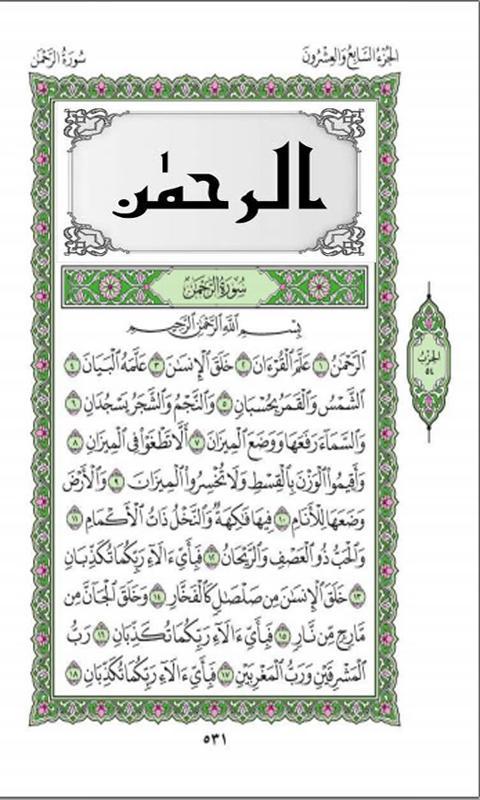 الجزء السابع والعشرون
سورة الرحمن
الرحمٰن
سُورَةُ الرَّحْمَٰن
بِسْمِ ٱللَّهِ ٱلرَّحْمَٰنِ ٱلرَّحِيمِ
ٱلرَّحْمَٰنُ ١ عَلَّمَ ٱلْقُرْءَانَ ٢ خَلَقَ ٱلْإِنسَٰنَ ٣ عَلَّمَهُ ٱلْبَيَانَ ٤
ٱلشَّمْسُ وَٱلْقَمَرُ بِحُسْبَانٍ ٥ وَٱلنَّجْمُ وَٱلشَّجَرُ يَسْجُدَانِ ٦
وَٱلسَّمَآءَ رَفَعَهَا وَوَضَعَ ٱلْمِيزَانَ ٧ أَلَّا تَطْغَوْا۟ فِى ٱلْمِيزَانِ ٨
وَأَقِيمُوا۟ ٱلْوَزْنَ بِٱلْقِسْطِ وَلَا تُخْسِرُوا۟ ٱلْمِيزَانَ ٩ وَٱلْأَرْضَ
وَضَعَهَا لِلْأَنَامِ ١٠ فِيهَا فَٰكِهَةٌ وَٱلنَّخْلُ ذَاتُ ٱلْأَكْمَامِ ١١
وَٱلْحَبُّ ذُو ٱلْعَصْفِ وَٱلرَّيْحَانُ ١٢ فَبِأَىِّ ءَالَآءِ رَبِّكُمَا تُكَذِّبَانِ
١٣ خَلَقَ ٱلْإِنسَٰنَ مِن صَلْصَٰلٍ كَٱلْفَخَّارِ ١٤ وَخَلَقَ ٱلْجَآنَّ مِن
مَّارِجٍ مِّن نَّارٍ ١٥ فَبِأَىِّ ءَالَآءِ رَبِّكُمَا تُكَذِّبَانِ ١٦ رَبُّ
ٱلْمَشْرِقَيْنِ وَرَبُّ ٱلْمَغْرِبَيْنِ ١٧ فَبِأَىِّ ءَالَآءِ رَبِّكُمَا تُكَذِّبَانِ ١٨
الحزب
٥٤
٥٣١